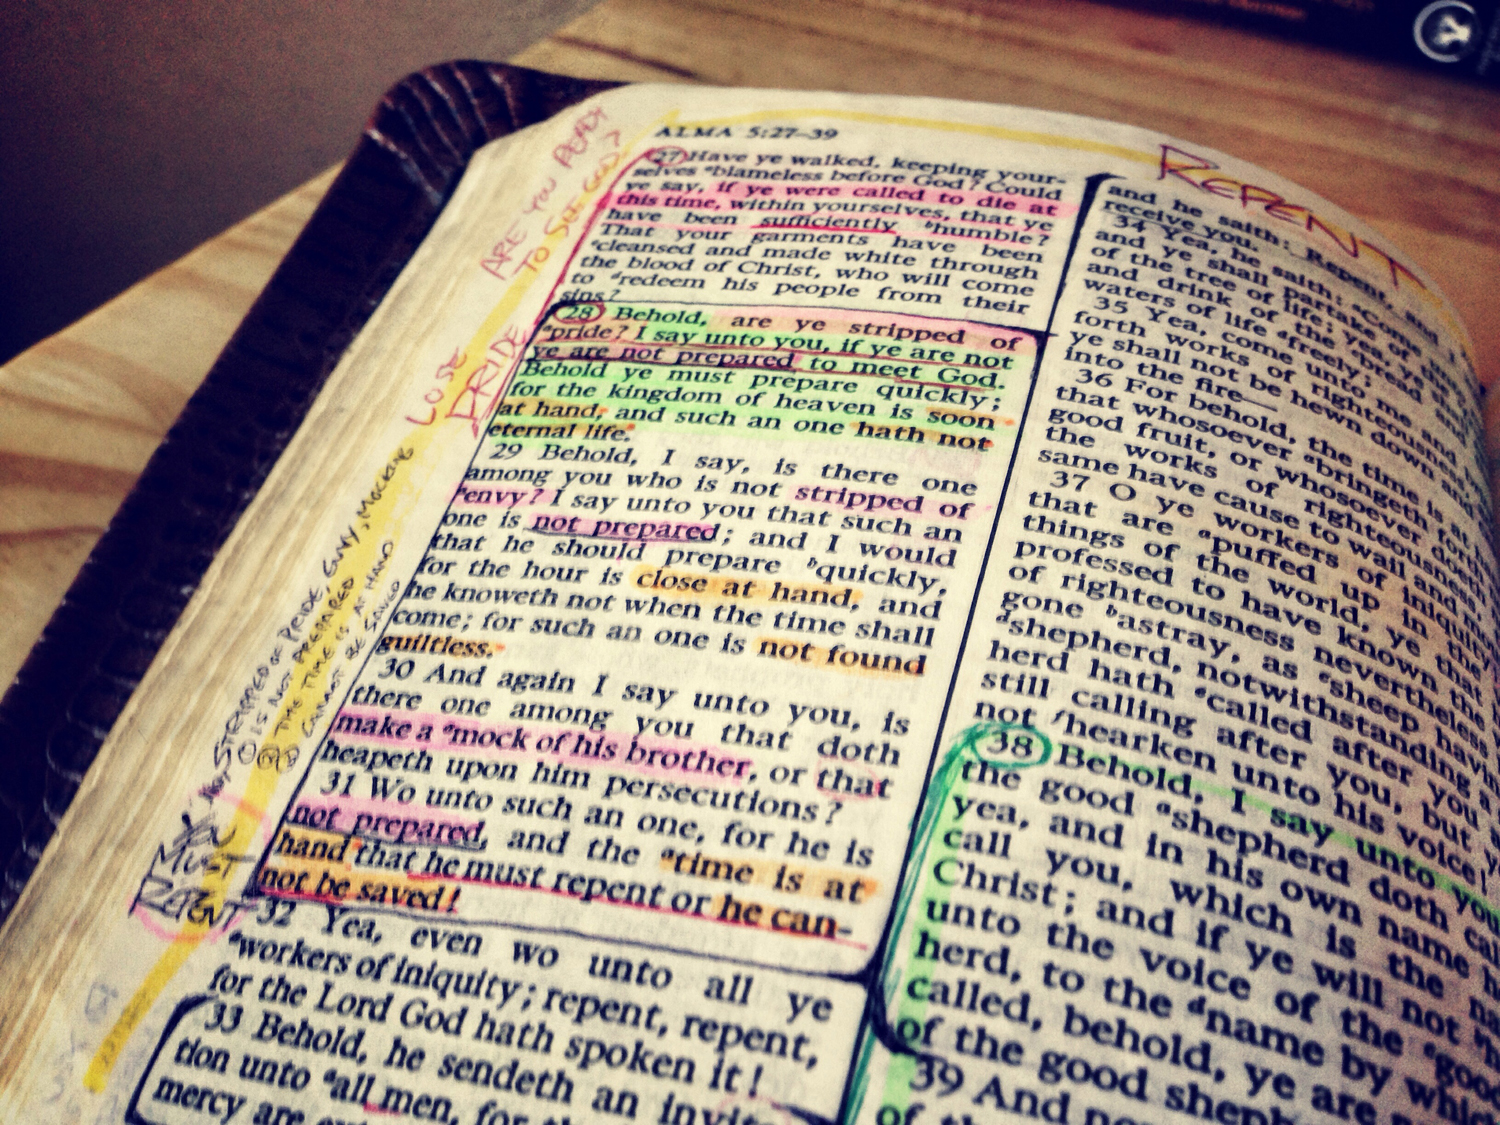 ALMA 5:27–39
27 Have ye walked, keeping your-
selves ablameless before God? Could
ye say, if ye were called to die at
this time, within yourselves, that ye
have been sufficiently bhumble?
That your garments have been
ccleansed and made white through
the blood of Christ, who will come
to dredeem his people from their
sins?
28 Behold, are ye stripped of
apride? I say unto you, if ye are not
ye are not prepared to meet God.
Behold ye must prepare quickly;
for the kingdom of heaven is soon
at hand, and such an one hath not
eternal life.
29 Behold, I say, is there one
among you who is not stripped of
aenvy? I say unto you that such an
one is not prepared; and I would
that he should prepare bquickly,
for the hour is close at hand, and
he knoweth not when the time shall
come; for such an one is not found
guiltless.
30 And again I say unto you, is
there one among you that doth
make a amock of his brother, or that
heapeth upon him persecutions?
31 Wo unto such an one, for he is
not prepared, and the atime is at
hand that he must repent or he can-
not be saved!
32 Yea, even wo unto all ye
aworkers of iniquity; repent, repent,
for the Lord God hath spoken it!
33 Behold, he sendeth an invita-
tion unto aall men, for the
mercy are
ARE YOU READY
TO SEE GOD?
LOSE
PRIDE
NOT STRIPPED OF PRIDE, ENVY, MOCKING
① IS NOT PREPARED
② TIME IS AT HAND
CANNOT BE SAVED
YOU
MUST
REPENT
REPENT
and he saith: Repent, and I
receive you.
34 Yea, he saith: Come
and ye shall partake
of the tree of life; yea,
and drink of the bread
waters of life afreely;
35 Yea, come unto me
forth works of righteousness,
ye shall not be hewn down and
into the fire—
36 For behold, the time is at
that whosoever abringeth
good fruit, or whosoever doeth
the works of righteousness,
same have cause to wail and
37 O ye workers of iniquity
that are apuffed up in the
things of the world, ye that
professed to have known the
of righteousness nevertheless
gone bastray, as csheep having
dshepherd, notwithstanding a
herd hath ecalled after you
still calling after you, but
not fhearken unto his voice!
38 Behold, I say unto you,
the good ashepherd doth call
yea, and in his own name he
call you, which is the name
Christ; and if ye will not
unto the voice of the good
herd, to the dname by which
called, behold, ye are
of the good
39 And
of the